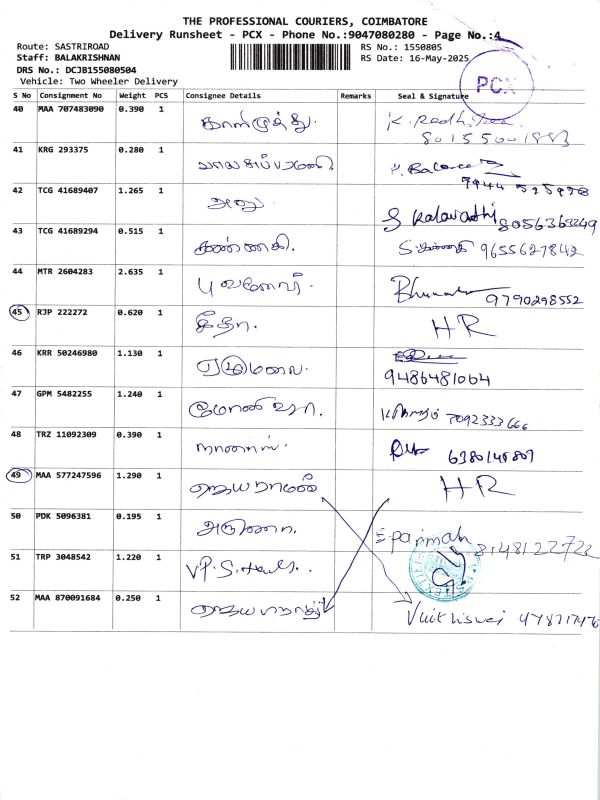 THE PROFESSIONAL COURIERS, COIMBATORE
Delivery Runsheet - PCX - Phone No.:9047080280 - Page No.:4
Route: SASTRIROAD RS No.: 1550805
Staff: BALAKRISHNAN RS Date: 16-May-2025
DRS No.: DCJB155080504
Vehicle: Two Wheeler Delivery
PCX
S No Consignment No Weight PCS Consignee Details Remarks Seal & Signature
40 MAA 707483090 0.390 1 காளிமுத்து. K. Radhika
41 KRG 293375 0.280 1 பாலசுப்பரமணி
42 TCG 41689407 1.265 1 அனு S Kalavathi 8056369249
43 TCG 41689294 0.515 1 கண்ணகி. 9655627842
44 MTR 2604283 2.635 1 புவனேஷ். 9790298552
45 RJP 222272 0.620 1 கீதா. HR
46 KRR 50246980 1.130 1 ஏழுமலை. 9486481064
47 GPM 5482255 1.240 1 மோனிஷா. 7092333666
48 TRZ 11092309 0.390 1 6380148807
49 MAA 577247596 1.290 1 ஜெயராமன் HR
50 PDK 5096381 0.195 1 அருணை. 8148122722
51 TRP 3048542 1.220 1
52 MAA 870091684 0.250 1